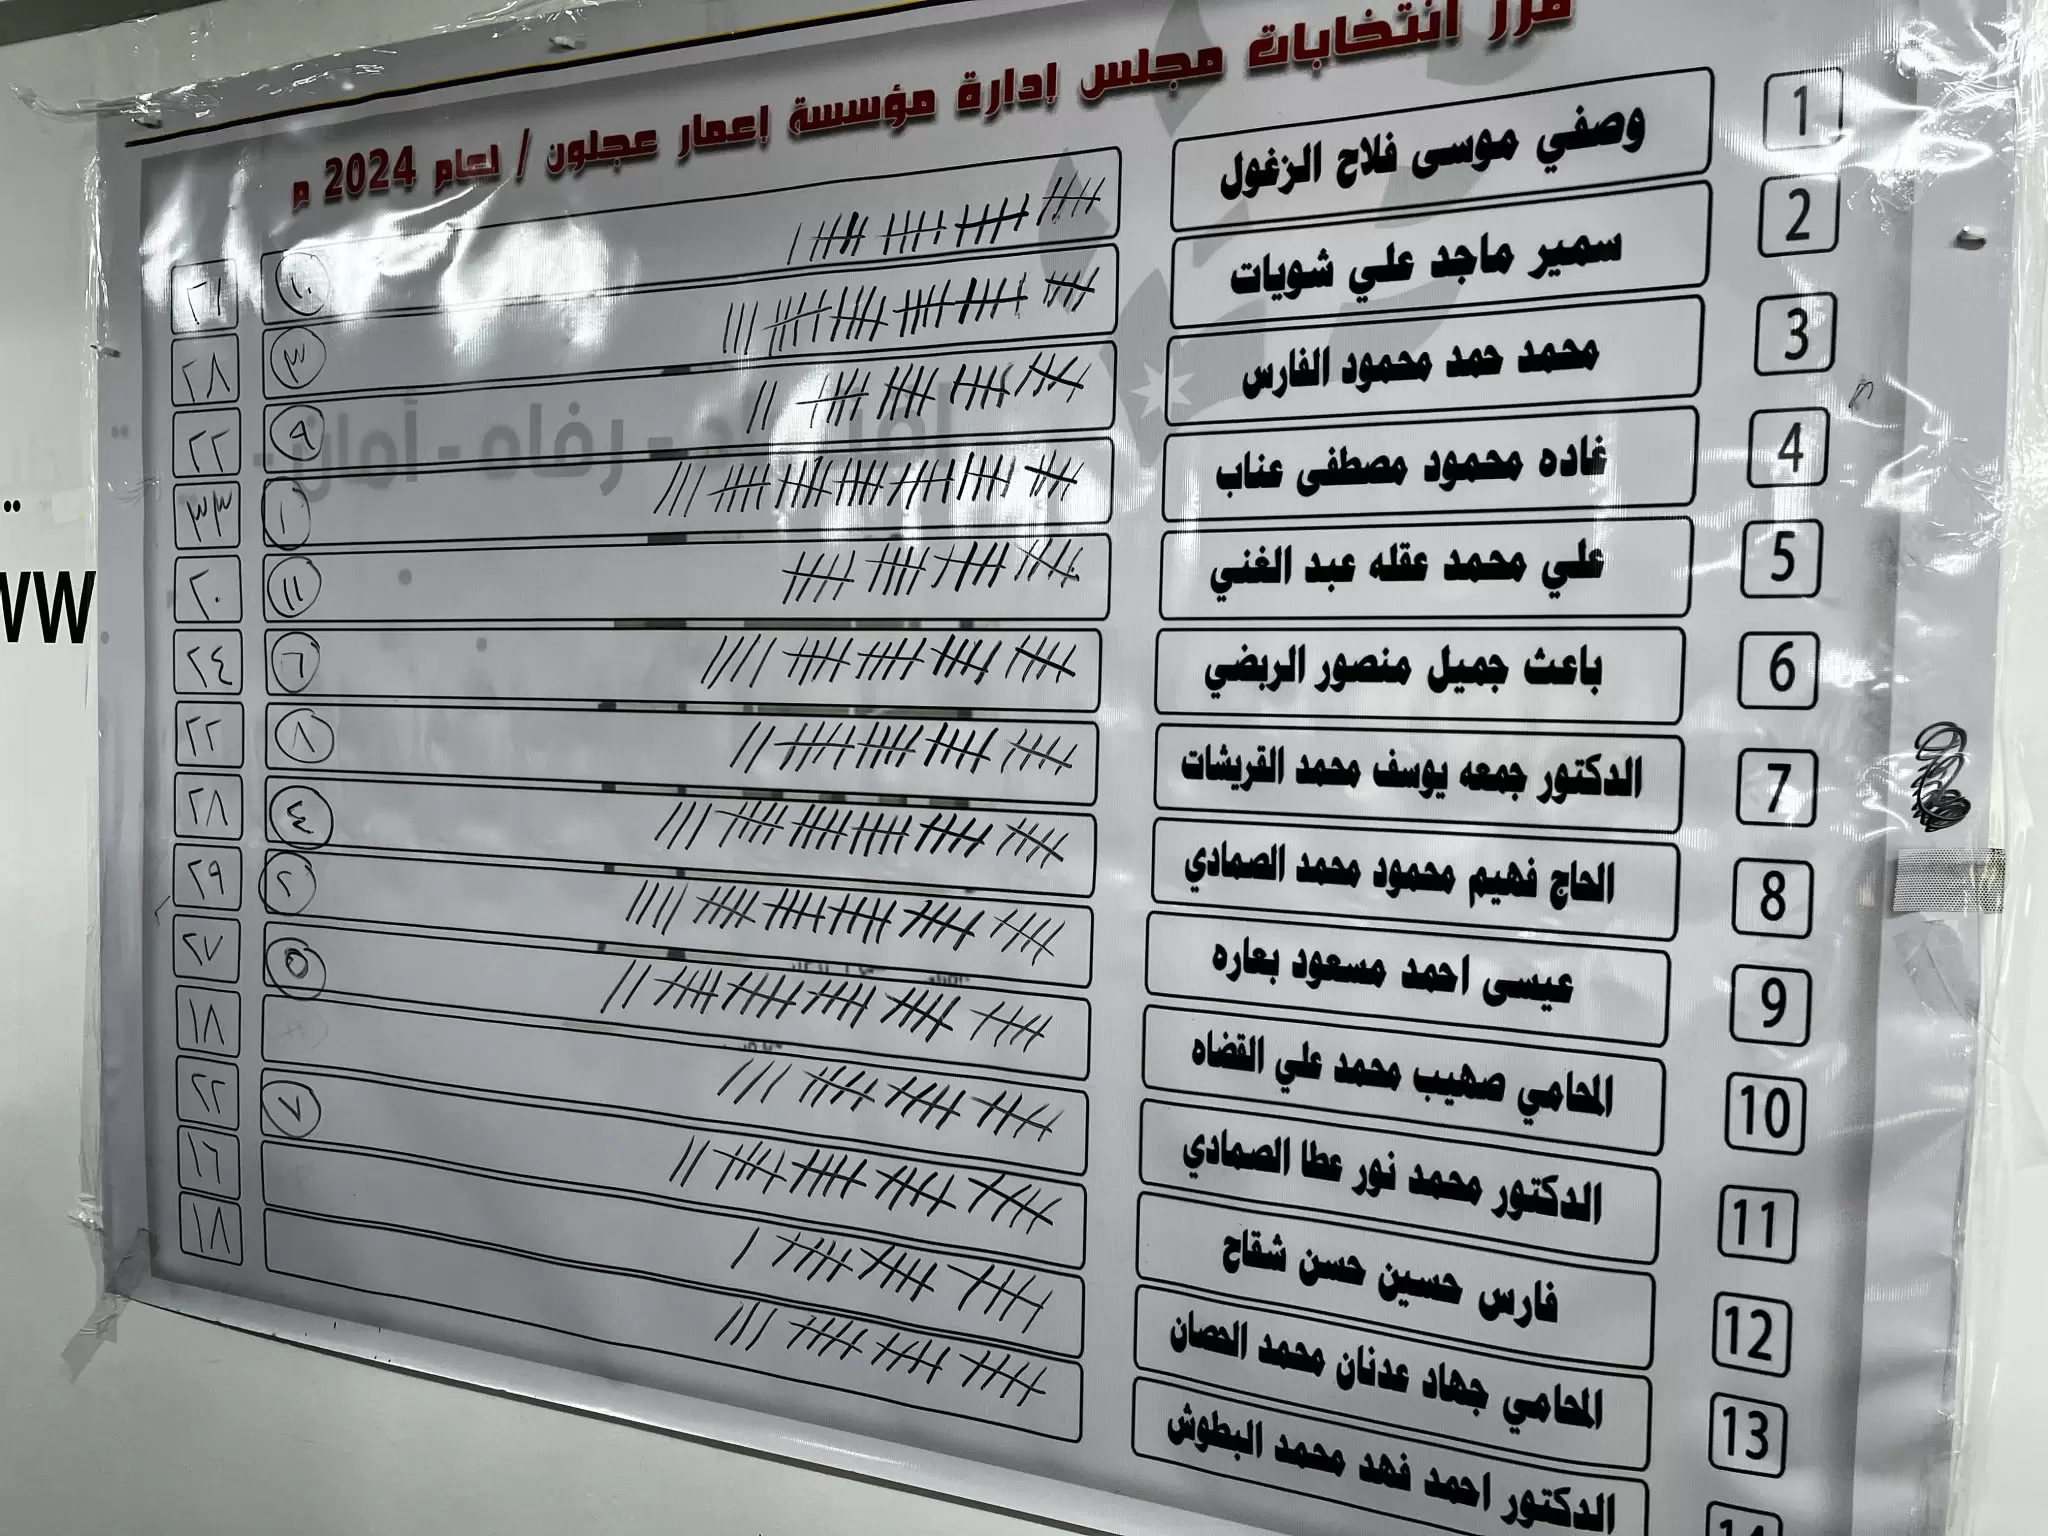 فرز انتخابات مجلس إدارة مؤسسة إعمار عجلون / لعام 2024 م
1 وصفي موسى فلاح الزغول ١٠ ٢١
2 سمير ماجد علي شويات ٣ ٢٨
3 محمد حمد محمود الفارس ٩ ٢٢
4 غاده محمود مصطفى عناب ١ ٣٣
5 علي محمد عقله عبد الغني ١١ ٢٠
6 باعث جميل منصور الربضي ٦ ٢٤
7 الدكتور جمعه يوسف محمد القريشات ٨ ٢٢
8 الحاج فهيم محمود محمد الصمادي ٤ ٢٨
9 عيسى احمد مسعود بعاره ٢ ٢٩
10 المحامي صهيب محمد علي القضاه ٥ ٢٧
11 الدكتور محمد نور عطا الصمادي ١٨
12 فارس حسين حسن شقاح ٧ ٢٢
13 المحامي جهاد عدنان محمد الحصان ١٦
14 الدكتور احمد فهد محمد البطوش ١٨
رفاه - أمان -
WW